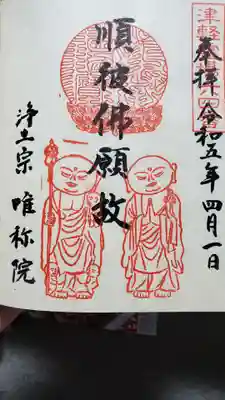 津軽
奉拝 令和五年四月一日
順彼佛願故
浄土宗 唯称院